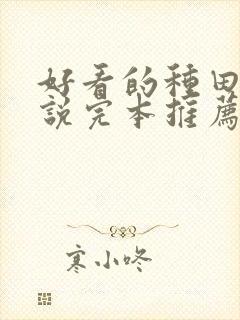 好看的種田
說完本推薦
寒小咚